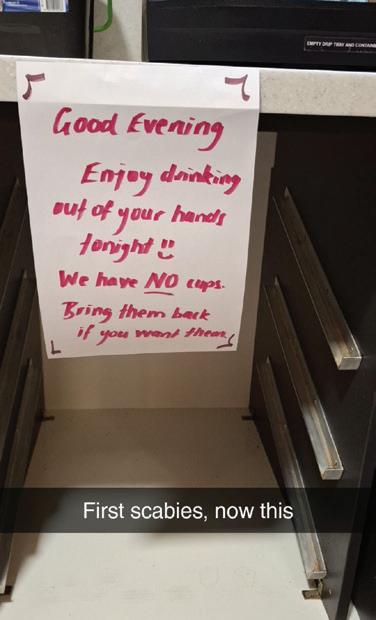 EMPTY DRIP TRAY AND CONTAINER
Good Evening
Enjoy drinking
out of your hands
tonight!!
We have NO cups.
Bring them back
if you want them!
First scabies, now this